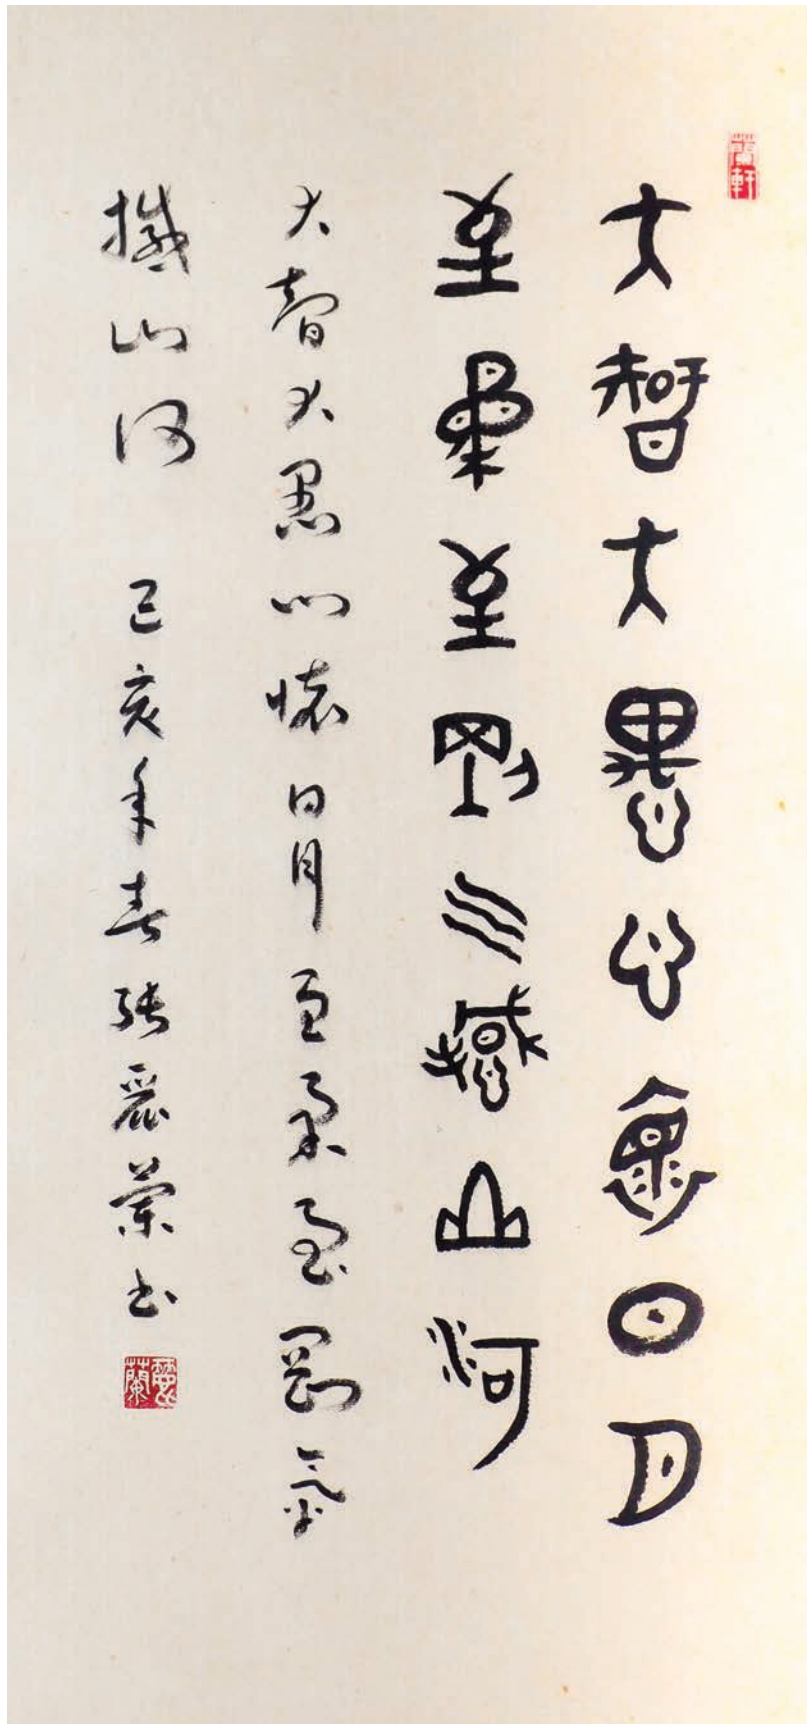 大智大愚心懷日月
至柔至剛气撼山河
大智大愚心懷日月至柔至剛氣
撼山河 己亥年春張麗蘭書
麗蘭